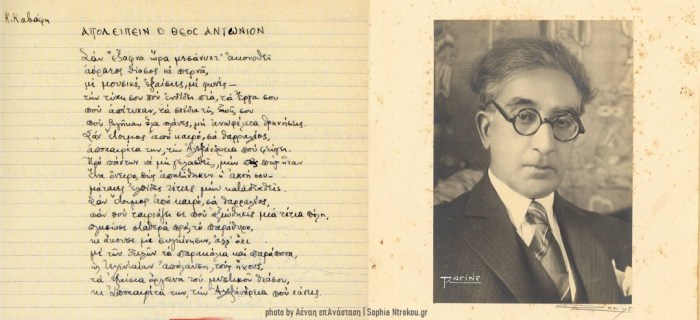 Κ. Καβάφη
ΑΠΟΛΕΙΠΕΙΝ Ο ΘΕΟΣ ΑΝΤΩΝΙΟΝ
Σὰν ἔξαφνα ὥρα μεσάνυχτ' ἀκουσθεῖ
ἀόρατος θίασος νὰ περνᾶ
μὲ μουσικὲς ἐξαίσιες, μὲ φωνές—
τὴν τύχη σου ποὺ ἐνδίδει πιά, τὰ ἔργα σου
ποὺ ἀπέτυχαν, τὰ σχέδια τῆς ζωῆς σου
ποὺ βγῆκαν ὅλα πλάνες, μὴ ἀνωφέλετα θρηνήσεις.
Σὰν ἕτοιμος ἀπὸ καιρό, σὰ θαρραλέος,
ἀποχαιρέτα την, τὴν Ἀλεξάνδρεια ποὺ φεύγει.
Πρὸ πάντων νὰ μὴ γελασθεῖς, μὴν πεῖς πῶς ἦταν
ἕνα ὄνειρο, πῶς ἀπατήθηκεν ἡ ἀκοή σου·
μάταιες ἐλπίδες τέτοιες μὴν καταδεχθεῖς.
Σὰν ἕτοιμος ἀπὸ καιρό, σὰ θαρραλέος,
σὰν ποὺ ταιριάζει σε ποὺ ἀξιώθηκες μιὰ τέτοια πόλη,
πλησίασε σταθερὰ πρὸς τὸ παράθυρο,
κι ἄκουσε μὲ συγκίνησιν, ἀλλ' ὄχι
μὲ τῶν δειλῶν τὰ παρακάλια καὶ παράπονα,
ὡς τελευταία ἀπόλαυση τοὺς ἤχους,
τὰ ἐξαίσια ὄργανα τοῦ μυστικοῦ θιάσου,
κι ἀποχαιρέτα την, τὴν Ἀλεξάνδρεια ποὺ χάνεις.
PACINO
photo by Αέναη επΑνάσταση | Sophia Ntrekou.gr